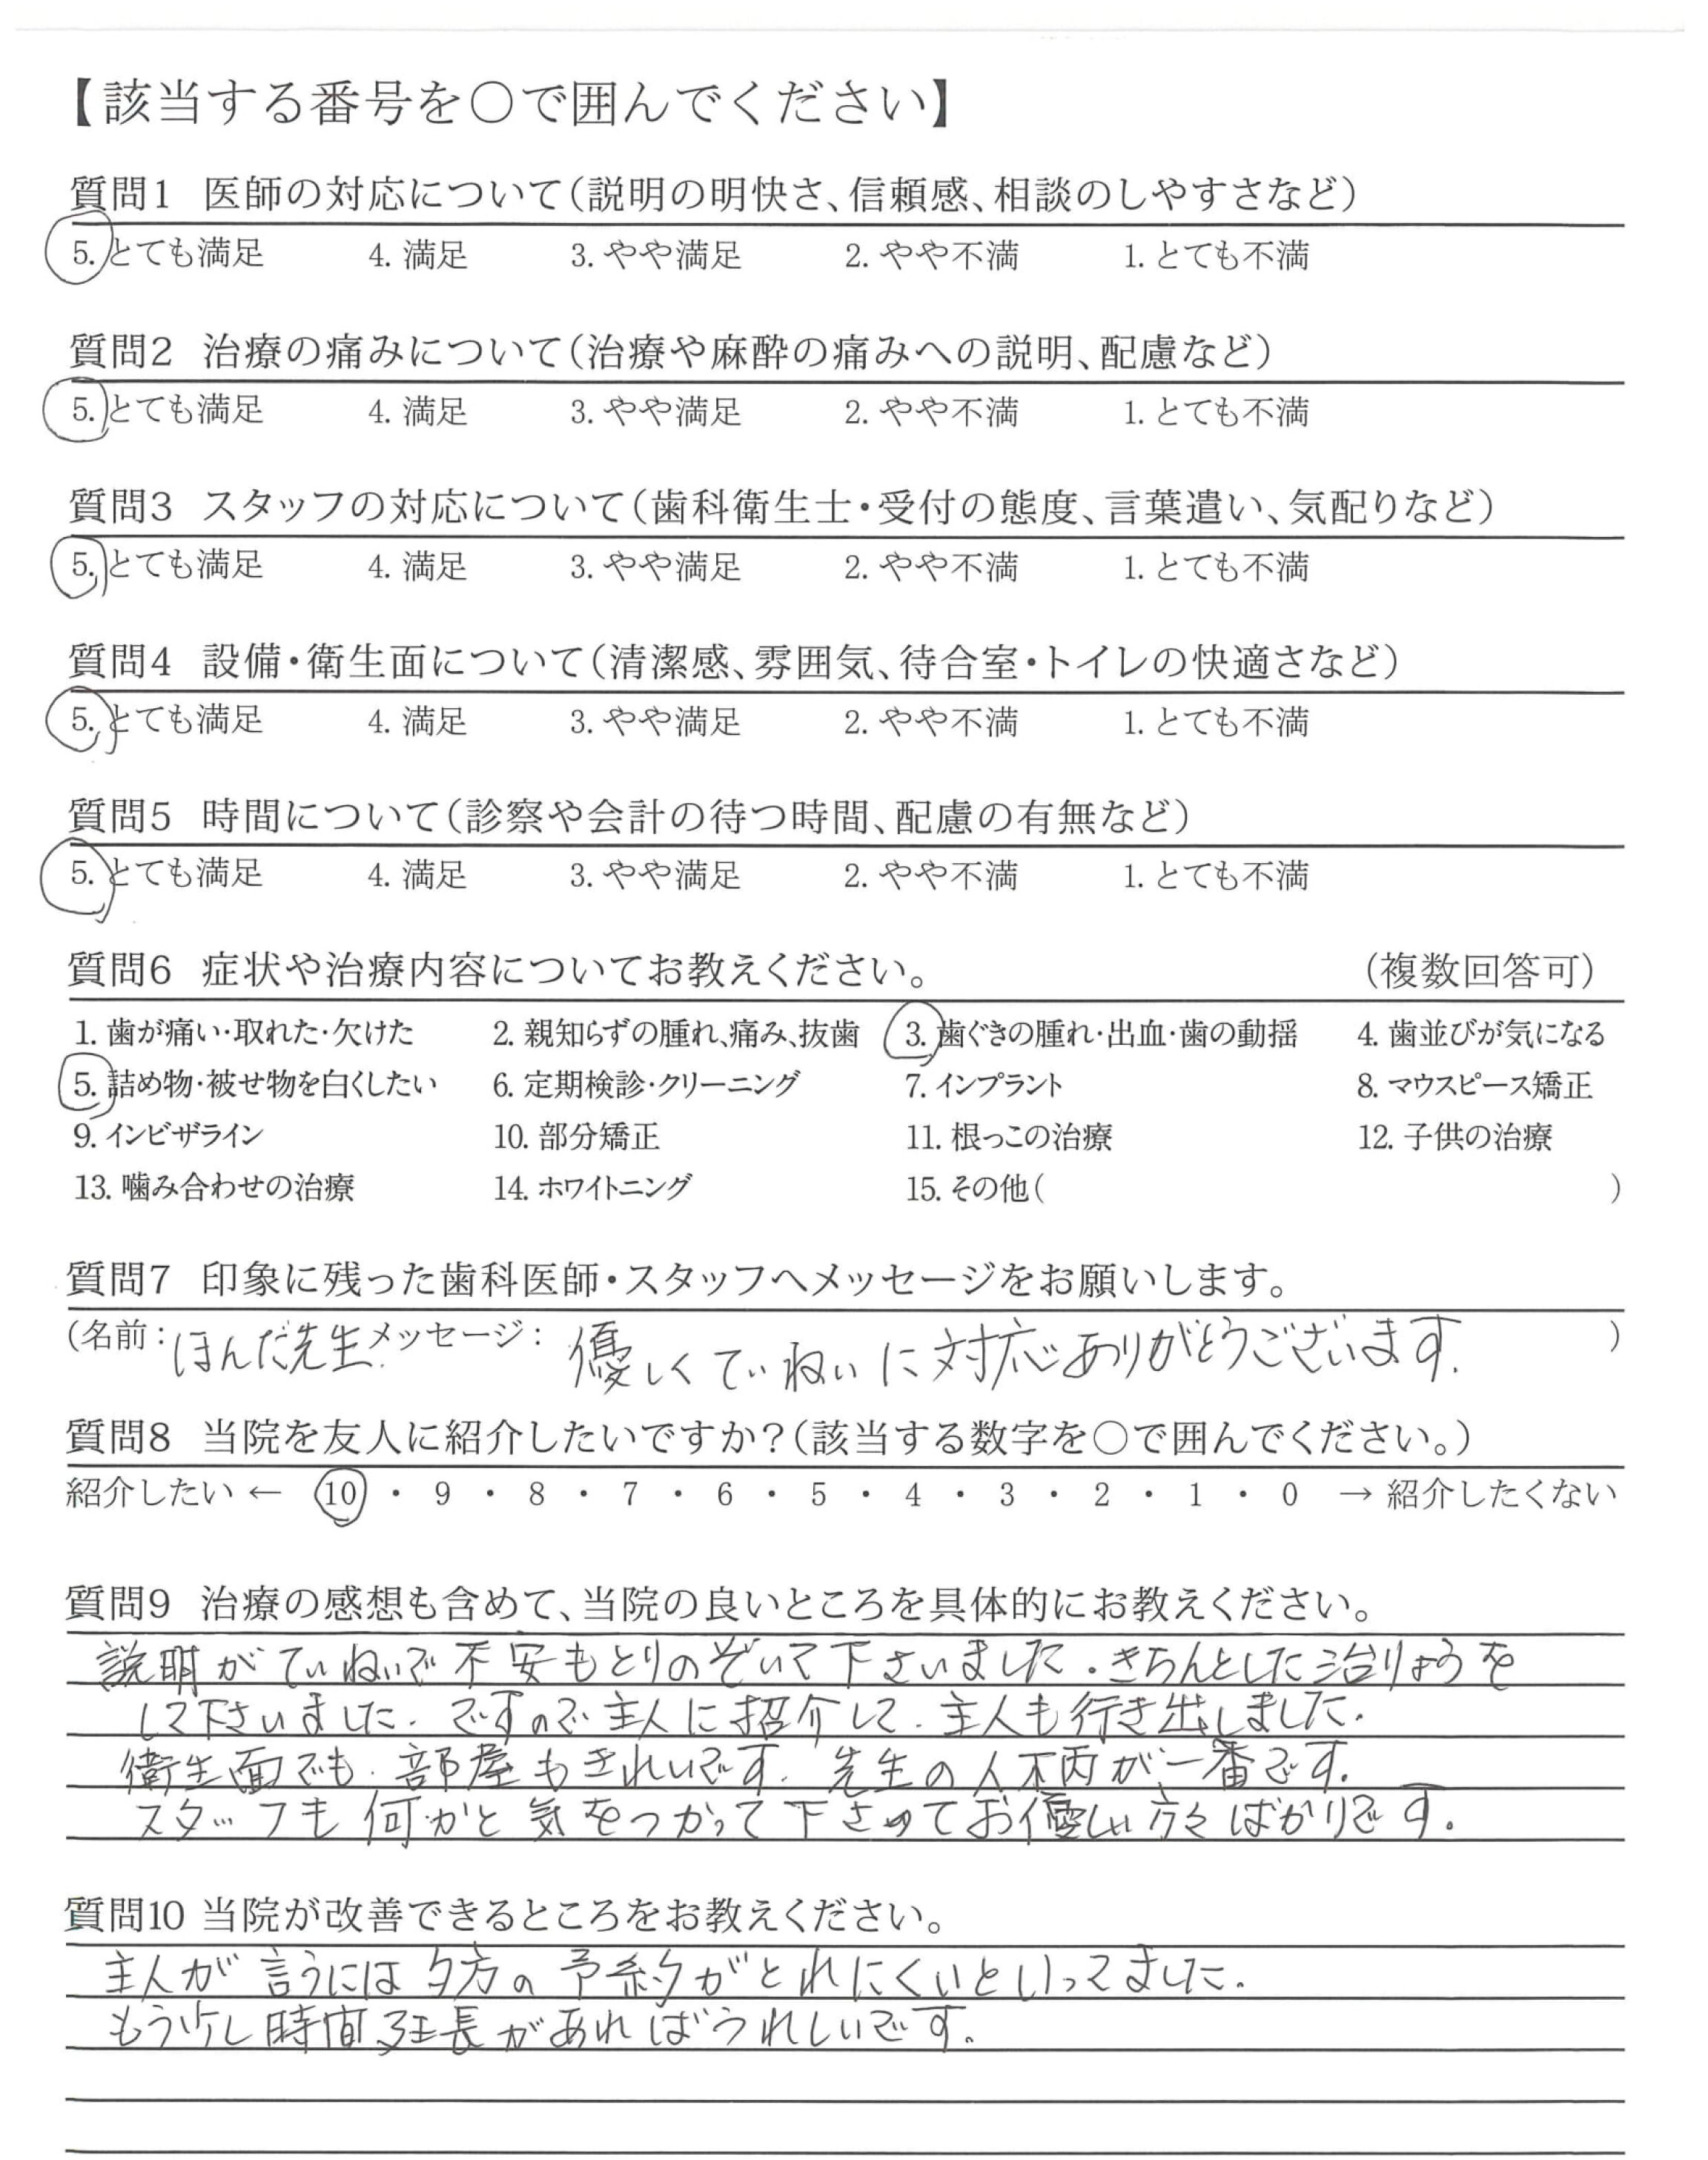 【該当する番号を〇で囲んでください】
質問1 医師の対応について（説明の明快さ、信頼感、相談のしやすさなど）
5. とても満足 4. 満足 3. やや満足 2. やや不満 1. とても不満
質問2 治療の痛みについて（治療や麻酔の痛みへの説明、配慮など）
5. とても満足 4. 満足 3. やや満足 2. やや不満 1. とても不満
質問3 スタッフの対応について（歯科衛生士・受付の態度、言葉遣い、気配りなど）
5. とても満足 4. 満足 3. やや満足 2. やや不満 1. とても不満
質問4 設備・衛生面について（清潔感、雰囲気、待合室・トイレの快適さなど）
5. とても満足 4. 満足 3. やや満足 2. やや不満 1. とても不満
質問5 時間について（診察や会計の待つ時間、配慮の有無など）
5. とても満足 4. 満足 3. やや満足 2. やや不満 1. とても不満
質問6 症状や治療内容についてお教えください。 （複数回答可）
1. 歯が痛い・取れた・欠けた 2. 親知らずの腫れ、痛み、抜歯 3. 歯ぐきの腫れ・出血・歯の動揺 4. 歯並びが気になる
5. 詰め物・被せ物を白くしたい 6. 定期検診・クリーニング 7. インプラント 8. マウスピース矯正
9. インビザライン 10. 部分矯正 11. 根っこの治療 12. 子供の治療
13. 噛み合わせの治療 14. ホワイトニング 15. その他（ ）
質問7 印象に残った歯科医師・スタッフへメッセージをお願いします。
（名前：ほんだ先生. メッセージ： 優しくていねいに対応ありがとうございます. ）
質問8 当院を友人に紹介したいですか？（該当する数字を〇で囲んでください。）
紹介したい ← 10 ・ 9 ・ 8 ・ 7 ・ 6 ・ 5 ・ 4 ・ 3 ・ 2 ・ 1 ・ 0 → 紹介したくない
質問9 治療の感想も含めて、当院の良いところを具体的にお教えください。
説明がていねいで不安もとりのぞいて下さいました. きちんとした治りょうを
して下さいました. ですので主人に紹介して. 主人も行き出しました.
衛生面でも. 部屋もきれいです. 先生の人柄が一番です.
スタッフも何かと気をつかって下さってお優しい方々ばかりです.
質問10 当院が改善できるところをお教えください。
主人が言うには夕方の予約がとれにくいといってました.
もう少し時間延長があればうれしいです。